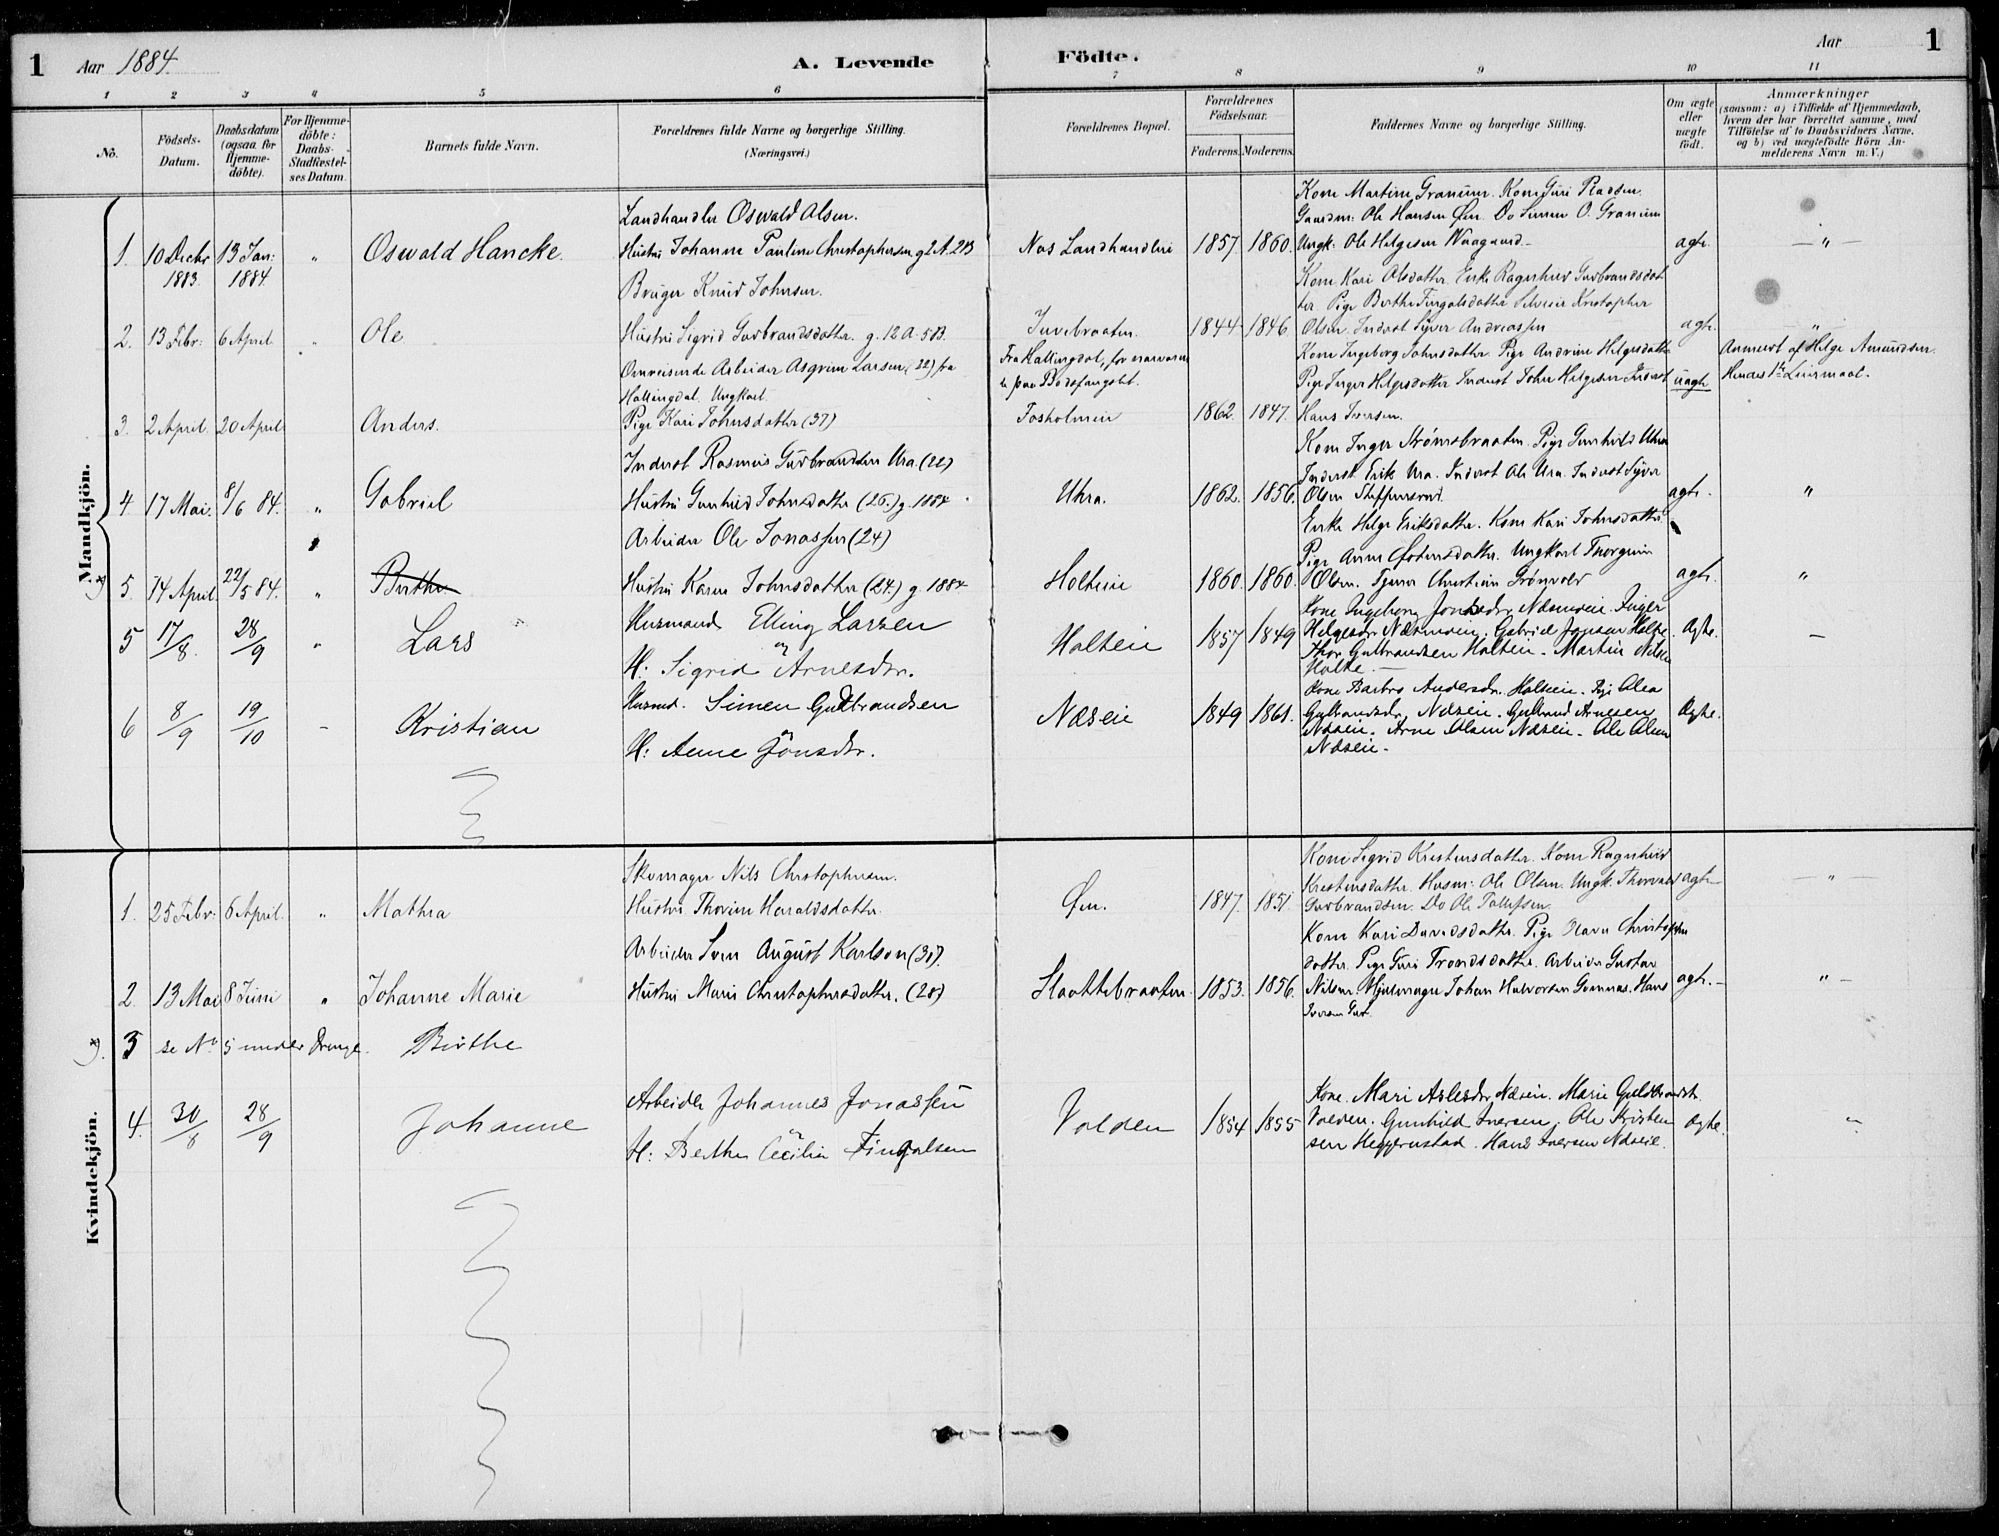 1 Aar 1884. A. Levende Födte. Aar 1
1 2 3 4 5 6 7 8 9 10 11
No.
Födsels-
Datum.
Daabsdatum
(ogsaa for
Hjemme-
döbte).
For Hjemme-
döbte:
Daabs-
Stadfæstel-
ses Datum.
Barnets fulde Navn.
Forældrenes fulde Navne og borgerlige Stilling.
(Næringsvei.)
Forældrenes Bopæl.
Forældrenes
Födselsaar.
Faderens. Moderens.
Faddernes Navne og borgerlige Stilling.
Om ægte
eller
uægte
födt.
Anmærkninger
(saasom: a) i Tilfælde af Hjemmedaab,
hvem der har forrettet samme, med
Tilföielse af to Daabsvidners Navne.
og b) ved uægtefödte Börn An-
melderens Navn m. V.)
Mandkjön.
1. 10 Decbr 1883. 13 Jan: 1884. " Oswald Hancke.
Landhandler Oswald Olsen.
Hustru Johanne Pauline Christophersen g 2 A. 2 B
Næs Landhandleri 1857. 1860.
Kone Martine Granum. Kone Guri Pladsen.
Gaardm: Ole Hansen Øen. Do Simen O. Granum
Ungk: Ole Helgesen Waagaard
ægte. — " —
2. 13 Febr: 6 April. " Ole
Bruger Knud Johnsen.
Hustru Sigrid Gudbrandsdatter. g. 12 A. 5 B.
Juvebraaten. 1844 1846
Kone Kari Olsdatter. Enke Ragnhild Gudbrandsdat
ter. Pige Berthe Fingalsdatter Kristopher
Olsen. Inderst Syver Andreassen
ægte. "
3. 2 April. 20 April Anders.
Omreisende Arbeider Asgrim Larsen (22) fra
Hallingdal. Ungkarl.
Pige Kari Johnsdatter (37)
Fra Hallingdal, for nærværen
de paa
Fosholmeie 1862. 1847.
Kone Ingeborg Johnsdatter. Pige Andrine Helgesdatter
Pige Inger Helgesdatter Inderst John Helgesen Inderst
Hans Iversen.
uægte
Anmeldt af Helge Amundsen.
Hendes 1ste Leiermaal.
4 17 Mai. 8/6 84. " Gabriel
Inderst Rasmus Gudbrandsen Ura. (22)
Hustru Gunhild Johnsdatter (26.) g. 1884
Uhra. 1862. 1856.
Kone Inger Strømsbraaten. Pige Gunhild Uhra
Inderst Erik Ura. Inderst Ole Ura. Inderst Syver
Olsen Steffensrud.
ægte. "
5. 14 April. 22/5 84. " Berthe
Arbeider Ole Jonassen (24)
Hustru Karen Johnsdatter (24.) g. 1884
Holteie 1860. 1860.
Enke Helge Eriksdatter. Kone Kari Johnsdatter.
Pige Anne Østensdatter. Ungkarl Thorgrim
Olsen. Tjener Christian Grønvold
ægte. "
5 17/8. 28/9 " Lars
Husmand Elling Larsen
H: Sigrid Arnesdr.
Holteie 1857 1849
Kone Ingeborg Jonsdr. Næsmoeie. Inger
Helgesdr Næsmoeie. Gabriel Jonsen Holte.
Thor Gulbrandsen Holteie. Martin Nilsen
Holte. —
Ægte. —
6 8/9 19/10 - Kristian
Husmd. Simen Guldbrandsen
H: Anne Jonsdr.
Næseie 1849 1861.
Kone Barbro Andersdr. Holteie. Pige Olea
Gulbrandsdr. Næseie. Gulbrand Arnesen
Næseie. Arne Olsen Næseie. Ole Olsen
Næseie.-
Ægte.
Kvindekjön.
1. 25 Febr: 6 April. " Mathea
Skomager Nils Christophersen.
Hustru Thorine Haraldsdatter
Øen. 1847. 1851.
Kone Sigrid Kristensdatter. Kone Ragnhild
Kristensdatter. Husm: Ole Olsen. Ungk. Thorvald
Gudbrandsen. Do Ole Tollefsen.
ægte — " —
2. 13 Mai 8 Juni " Johanne Marie
Arbeider Sven August Karlson (31).
Hustru Marie Christophersdatter. (28)
Slaattebraaten. 1853. 1856.
Kone Kari Davidsdatter. Pige Christophers
datter. Pige Guri Trondsdatter. Arbeider Gustav
Nilsen Hjulmager Johan Halvorsen Hans
Iversen
ægte. — " —
3 se No 5 under Drenge. Birthe
4. 30/8 28/9 Johanne
Arbeider Johannes Jonassen
H: Berthe Cecilie Fingalsen
Volden 1854 1855
Kone. Mari Aslesdr. Næseie. Marie Guldbrandsdr.
Volden. Gunhild Iversen. Ole Kristen
sen Heggerustad. Hans Iversen Næseie.
Ægte. "